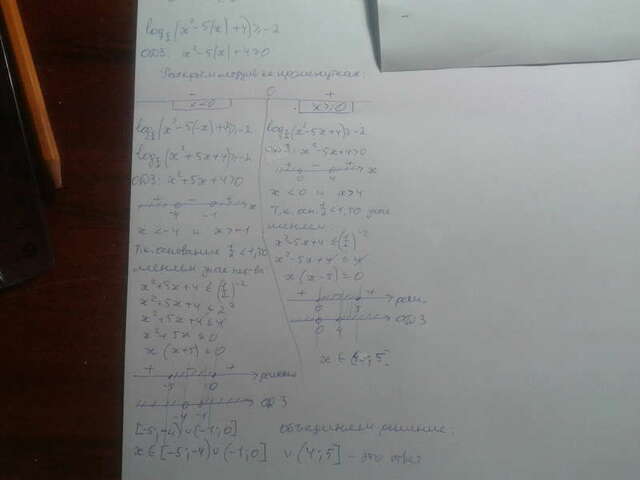 log½(x²-5|x|+4)≥-2
ОДЗ: x²-5|x|+4>0
Раскроем модуль на промежутках:
- 0 +
x<0
log½(x²-5(-x)+4)≥-2
log½(x²+5x+4)≥-2
ОДЗ: x²+5x+4>0
+ - + x
-4 -1
x<-4 и x>-1
т.к. основание ½<1, то
меняем знак нер-ва
x²+5x+4≤(½)⁻²
x²+5x+4≤2²
x²+5x+4≤4
x²+5x≤0
x(x+5)=0
+ - +
-5 0
ОДЗ
-4 -1
[-5;-4)∪(-1;0]
x≥0
log½(x²-5x+4)≥-2
ОДЗ: x²-5x+4>0
+ - + x
0 4
x<0 и x>4
т.к. осн. ½<1, то знак
меняем
x²-5x+4≤(½)⁻²
x²-5x+4≤4
x(x-5)=0
+ - +
0 5
ОДЗ
0 4
объединяем решение:
x∈[-5;-4)∪(-1;0] ∪(4;5] - это ответ